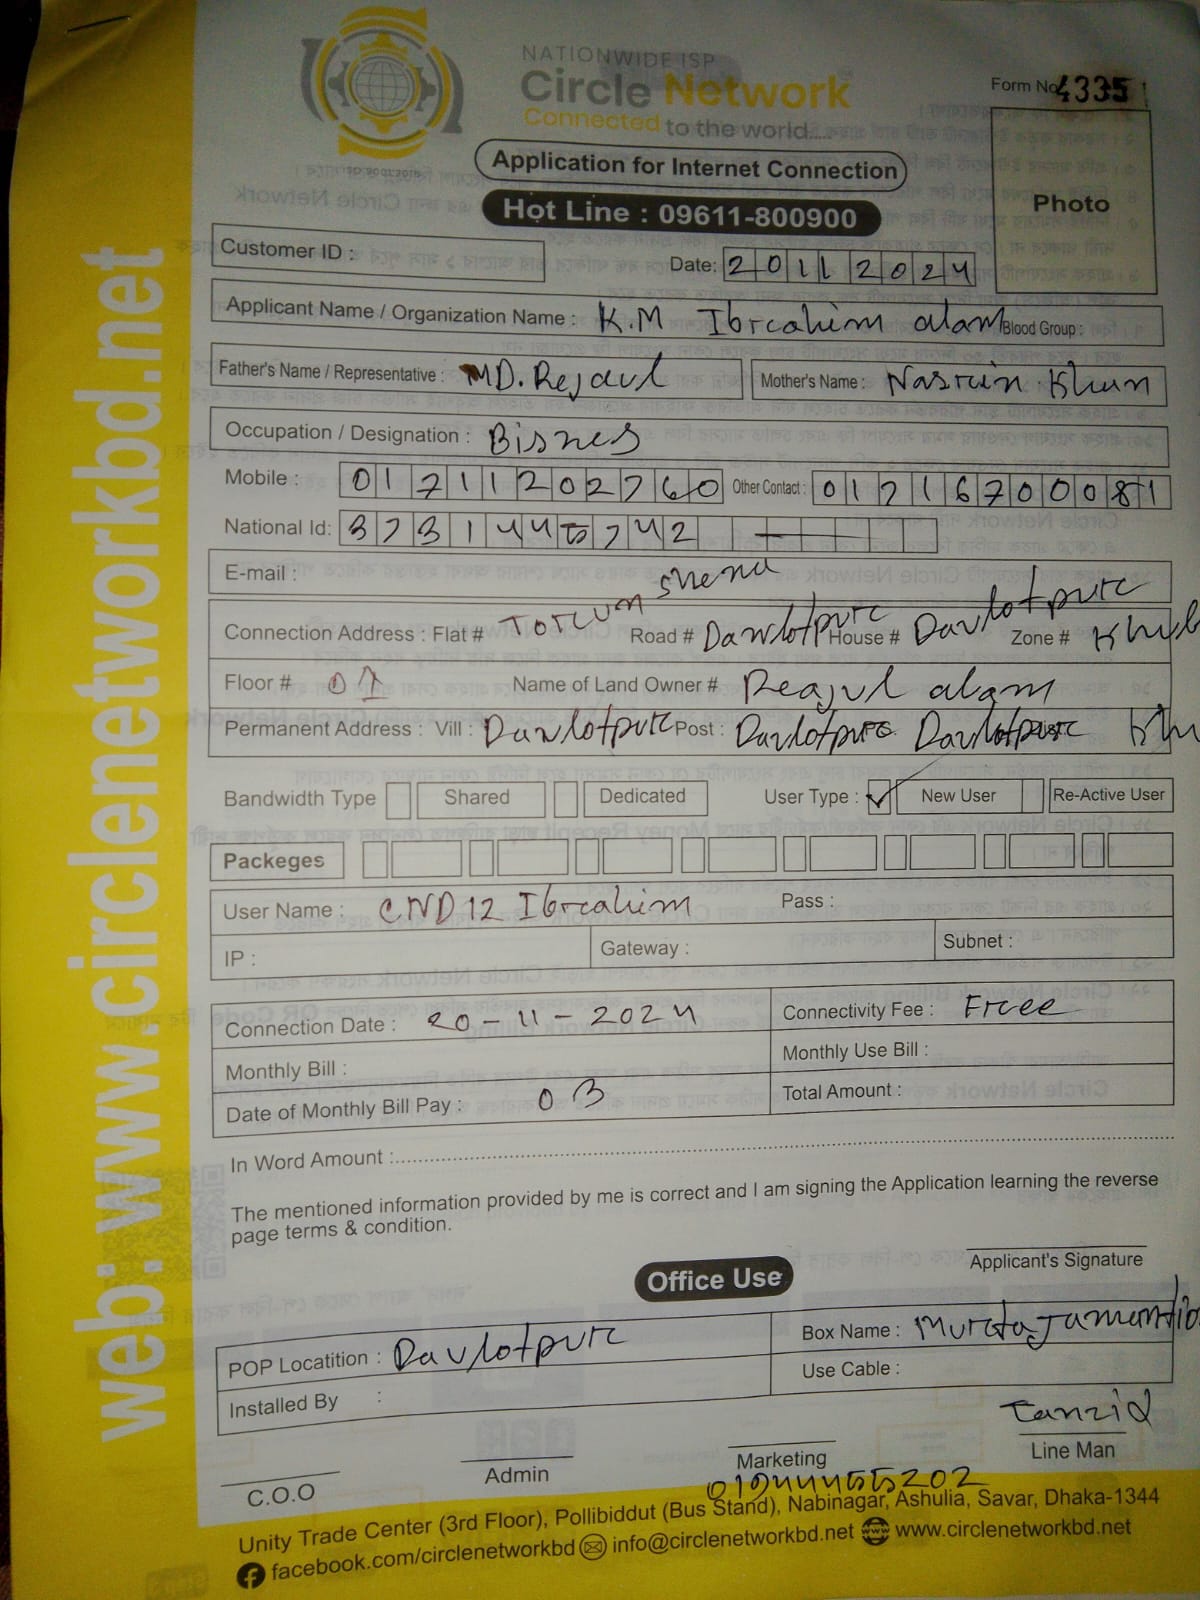 NATIONWIDE ISP
Circle Network
Connected to the world.....
Form No 4335
Application for Internet Connection
Hot Line : 09611-800900
Photo
Customer ID :
Date: 20112024
Applicant Name / Organization Name : K.M Ibrcahim alam Blood Group :
Father's Name / Representative : MD. Rejaul Mother's Name : Nasrin Khun
Occupation / Designation : Bisnes
Mobile : 01711202760 Other Contact : 01216700081
National Id: 3731445742
E-mail :
Connection Address : Flat # Road # House # Davlotpurc Zone #
Floor # 01 Name of Land Owner # Reajul alam
Permanent Address : Vill : Davlotpurc Post : Davlotpurc Davlotpurc
Bandwidth Type Shared Dedicated User Type : ✓ New User Re-Active User
Packeges
User Name : CND12 Ibrcahim Pass :
IP : Gateway : Subnet :
Connection Date : 20-11-2024 Connectivity Fee : Frcee
Monthly Bill : Monthly Use Bill :
Date of Monthly Bill Pay : 03 Total Amount :
In Word Amount :
The mentioned information provided by me is correct and I am signing the Application learning the reverse
page terms & condition.
Applicant's Signature
Office Use
POP Locatition : Davlotpurc Box Name :
Installed By : Use Cable :
Tanzid
C.O.O Admin Marketing Line Man
Unity Trade Center (3rd Floor), Pollibiddut (Bus Stand), Nabinagar, Ashulia, Savar, Dhaka-1344
facebook.com/circlenetworkbd info@circlenetworkbd.net www.circlenetworkbd.net
web: www.circlenetworkbd.net